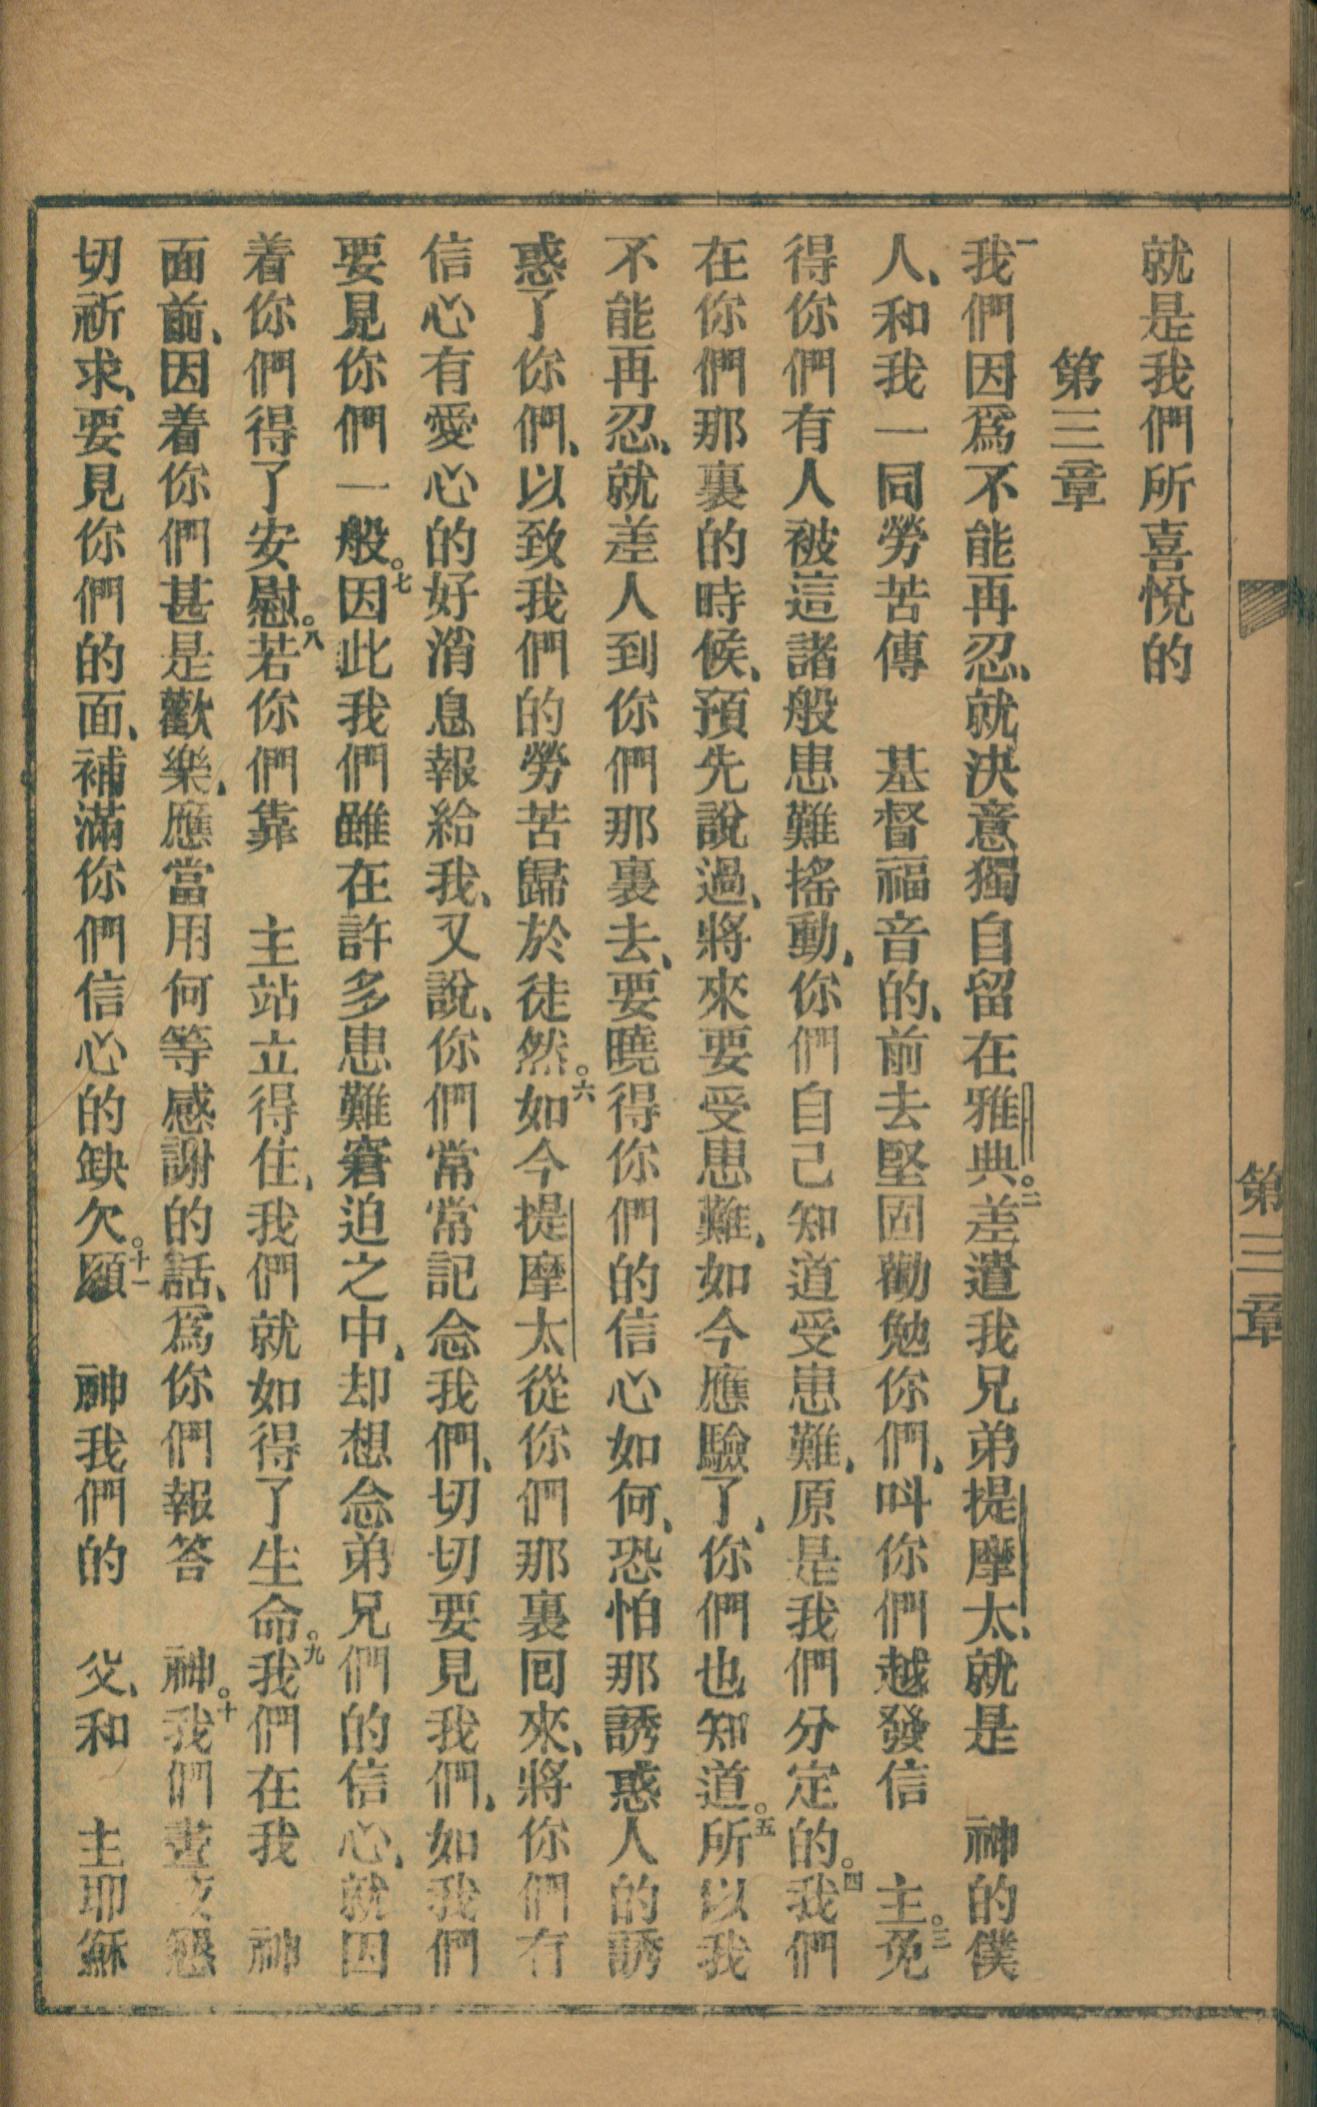 第三章
就是我們所喜悅的
第三章
一我們因爲不能再忍、就決意獨自留在雅典。二差遣我兄弟提摩太、就是　神的僕
人、和我一同勞苦傳　基督福音的、前去堅固勸勉你們、呌你們越發信　主。三免
得你們有人被這諸般患難搖動、你們自己知道受患難、原是我們分定的。四我們
在你們那裏的時候、預先說過、將來要受患難、如今應驗了、你們也知道。五所以我
不能再忍、就差人到你們那裏去、要曉得你們的信心如何、恐怕那誘惑人的誘
惑了你們、以致我們的勞苦歸於徒然。六如今提摩太從你們那裏囘來、將你們有
信心有愛心的好消息報給我、又說、你們常常記念我們、切切要見我們、如我們
要見你們一般。七因此我們雖在許多患難窘迫之中、却想念弟兄們的信心、就因
着你們得了安慰。八若你們靠　主站立得住、我們就如得了生命。九我們在我　神
面前、因着你們甚是歡樂、應當用何等感謝的話、爲你們報答　神。十我們晝夜懇
切祈求、要見你們的面、補滿你們信心的缺欠。十一願　神我們的　父、和　主耶穌